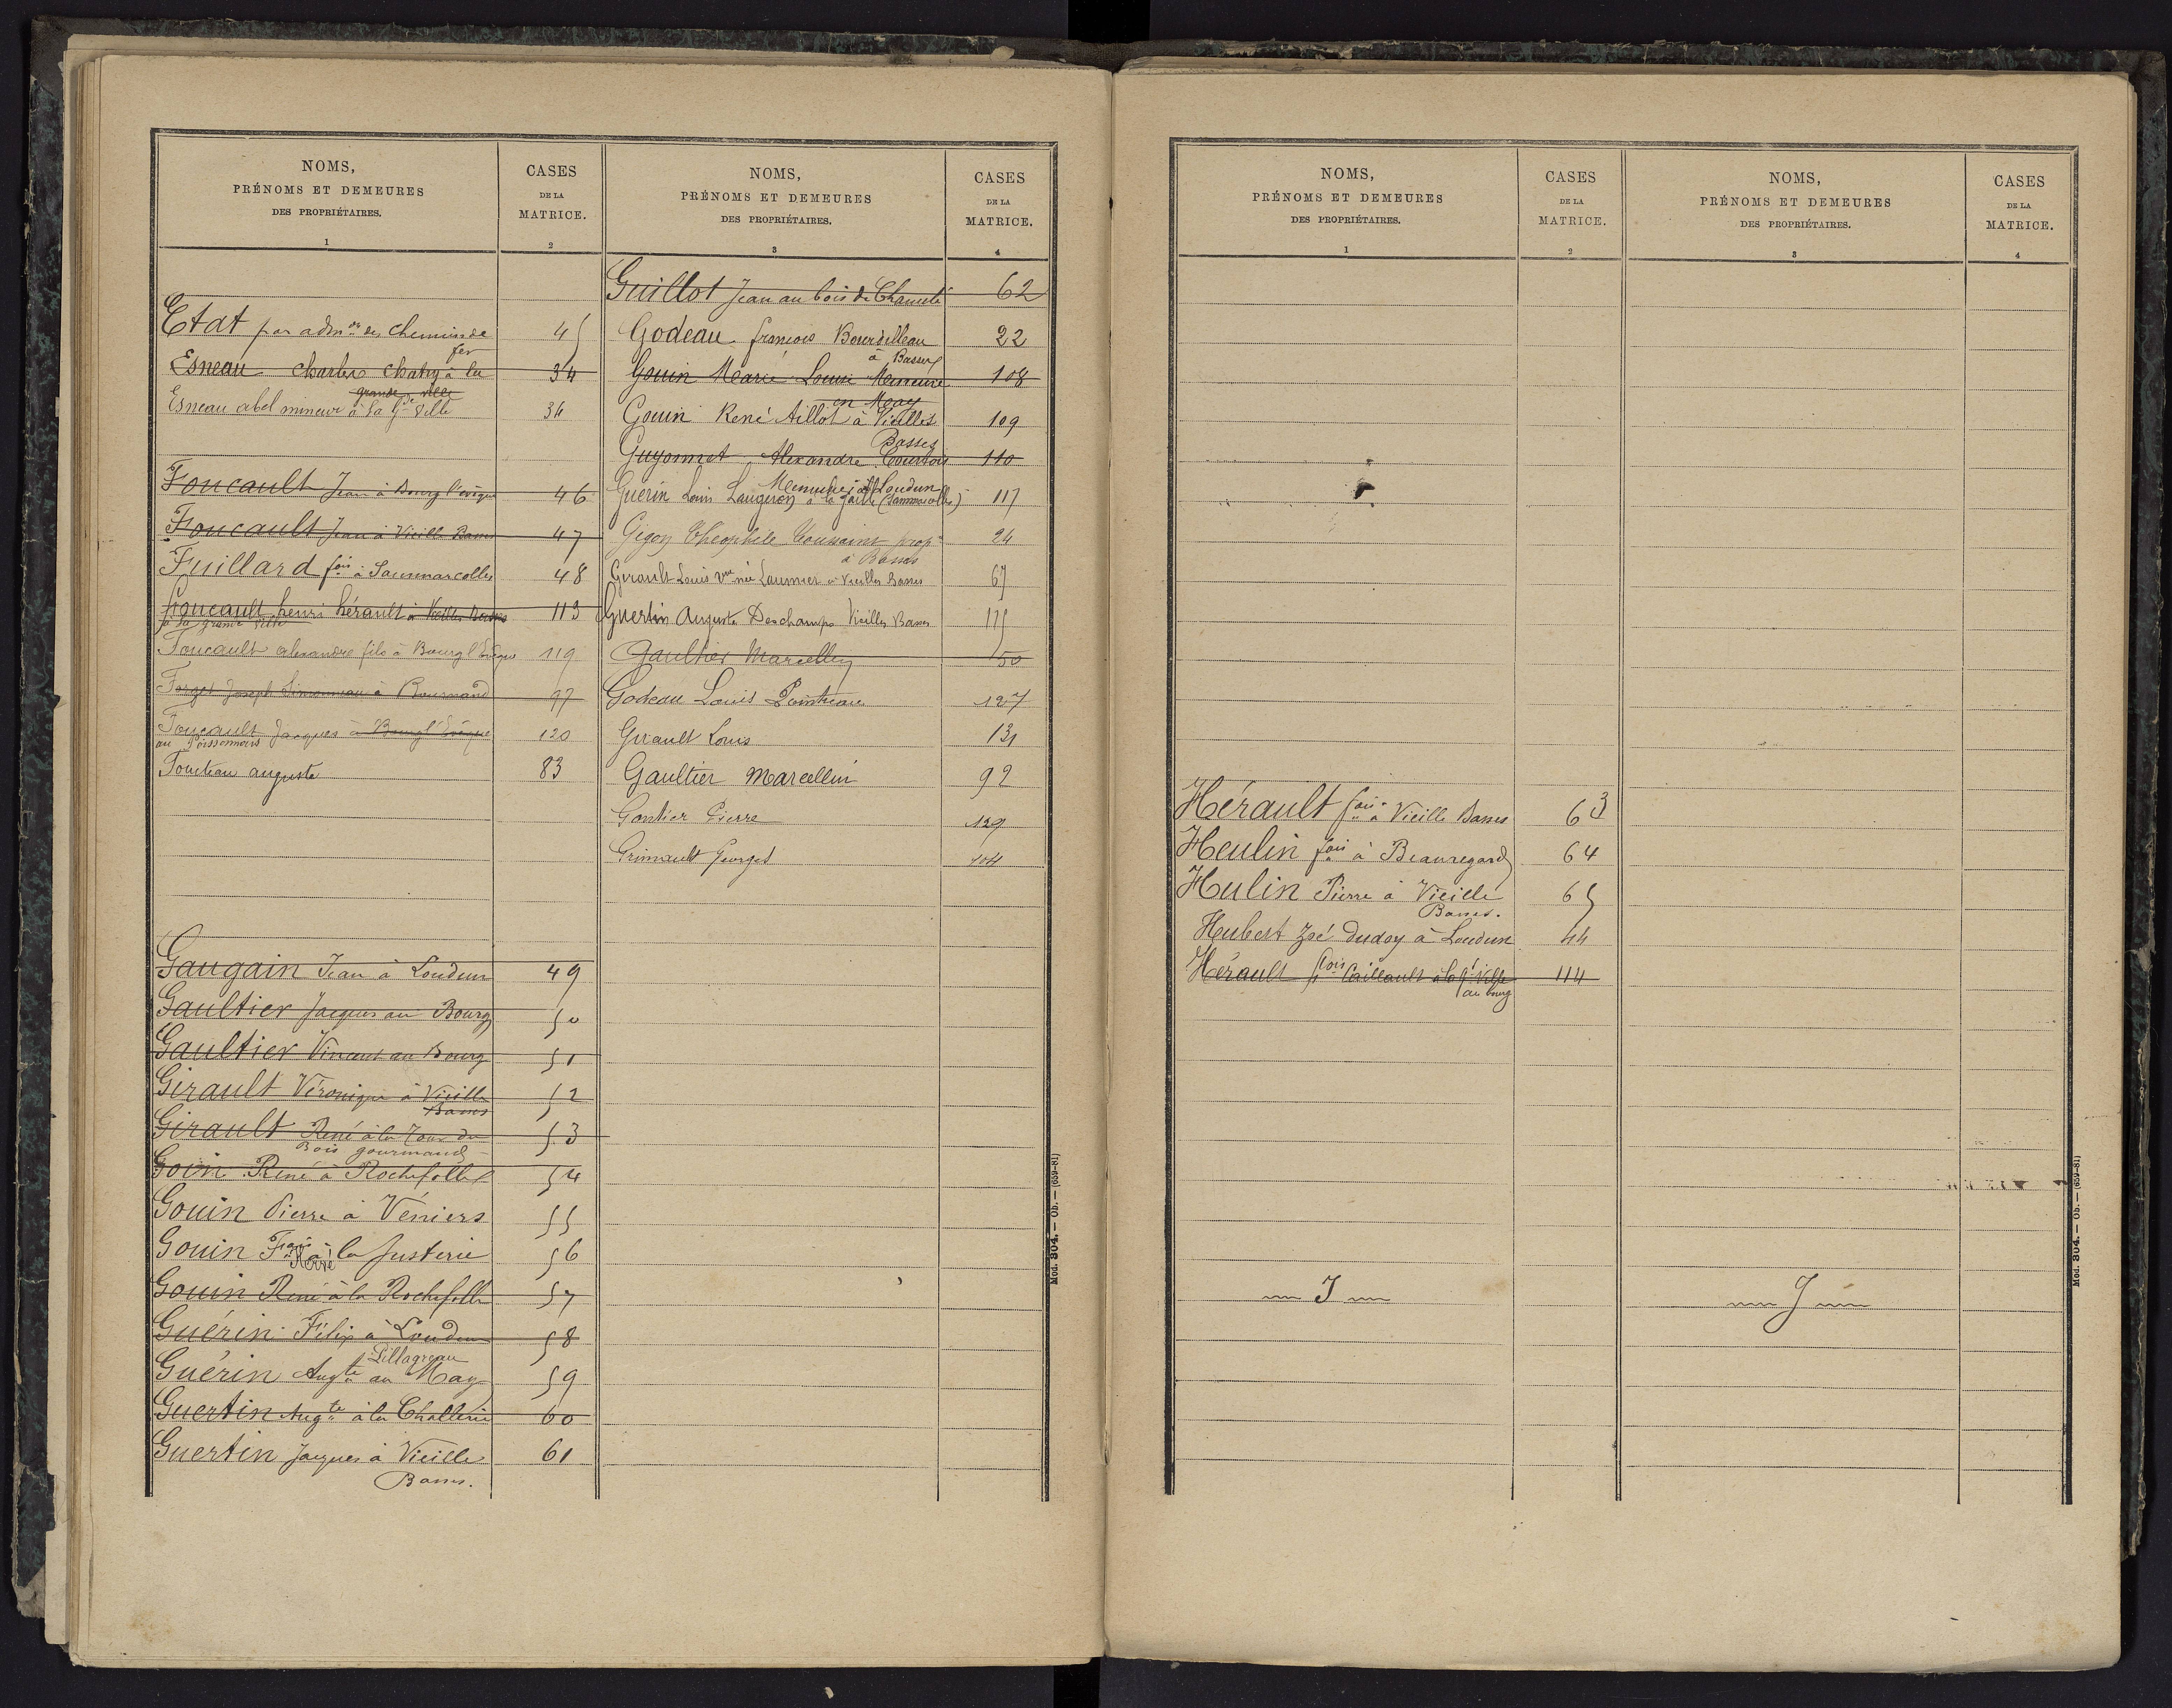 NOMS,
PRÉNOMS ET DEMEURES
DES PROPRIÉTAIRES.
1
CASES
DE LA
MATRICE.
2
Etat par adm des chemins de 45
fer
Esneau charles chatry à la 34
grande ville
Esneau abel mineur à la Gde Ville 34
Foucault Jean à Bourg l'évêque 46
Foucault Jean à Vieille Basses 47
Fuillard fois à Sammarcolles 48
Foucault henri hérault à Vieilles Basses 113
à la grande ville
Foucault alexandre fils à Bourg l'Evêque 119
Forget Joseph Simonneau à Bournand 97
Foucault Jacques à Bourg l'Evêque 120
au Poissonnais
Fouteau auguste 83
Gaugain Jean à Loudun 49
Gaultier Jacques au Bourg 50
Gaultier Vincent au Bourg 51
Girault Véronique à Vieille 52
Basses
Girault René à la Tour du 53
Bois gourmand
Goin René à Rochefolle 54
Gouin Pierre à Véniers 55
Gouin Fçois à la Justerie 56
Hervé
Gouin René à la Rochefolle 57
Guérin Félix à Loudun 58
Pillagreau
Guérin Augte au May 59
Guertin Augte à la Challerie 60
Guertin Jacques à Vieilles 61
Basses.
NOMS,
PRÉNOMS ET DEMEURES
DES PROPRIÉTAIRES.
3
CASES
DE LA
MATRICE.
4
Guillot Jean au bois de 62
Godeau françois Bourdilleau 22
à Basses
Gouin Marie Louise 108
en May
Gouin René Aillot à Vieilles 109
Basses
Guyonnet Alexandre Courtois 110
Menuisier à Loudun
Guérin Louis Laugeron à la (Sammarcolles) 117
Gigon Théophile Toussaint prop 24
à Basses
Girault Louis Vve née Laumier à Vieilles Basses 67
Guertin Auguste Deschamps Vieilles Basses 175
Gaultier Marcellin 50
Godeau Louis Pointreau 127
Girault Louis 131
Gaultier Marcellin 92
Gontier Pierre 129
Grimault Georges 104
Mod. 304. — Ob. — (659-81)
NOMS,
PRÉNOMS ET DEMEURES
DES PROPRIÉTAIRES.
1
CASES
DE LA
MATRICE.
2
Hérault fois à Vieille Basses 63
Heulin fois à Beauregard 64
Hulin Pierre à Vieille 65
Basses.
Hubert Zoé dudoy à Loudun 44
Hérault fois Caillault à la gde Ville 114
au bourg
I
NOMS,
PRÉNOMS ET DEMEURES
DES PROPRIÉTAIRES.
3
CASES
DE LA
MATRICE.
4
J
Mod. 304. — Ob. — (659-81)